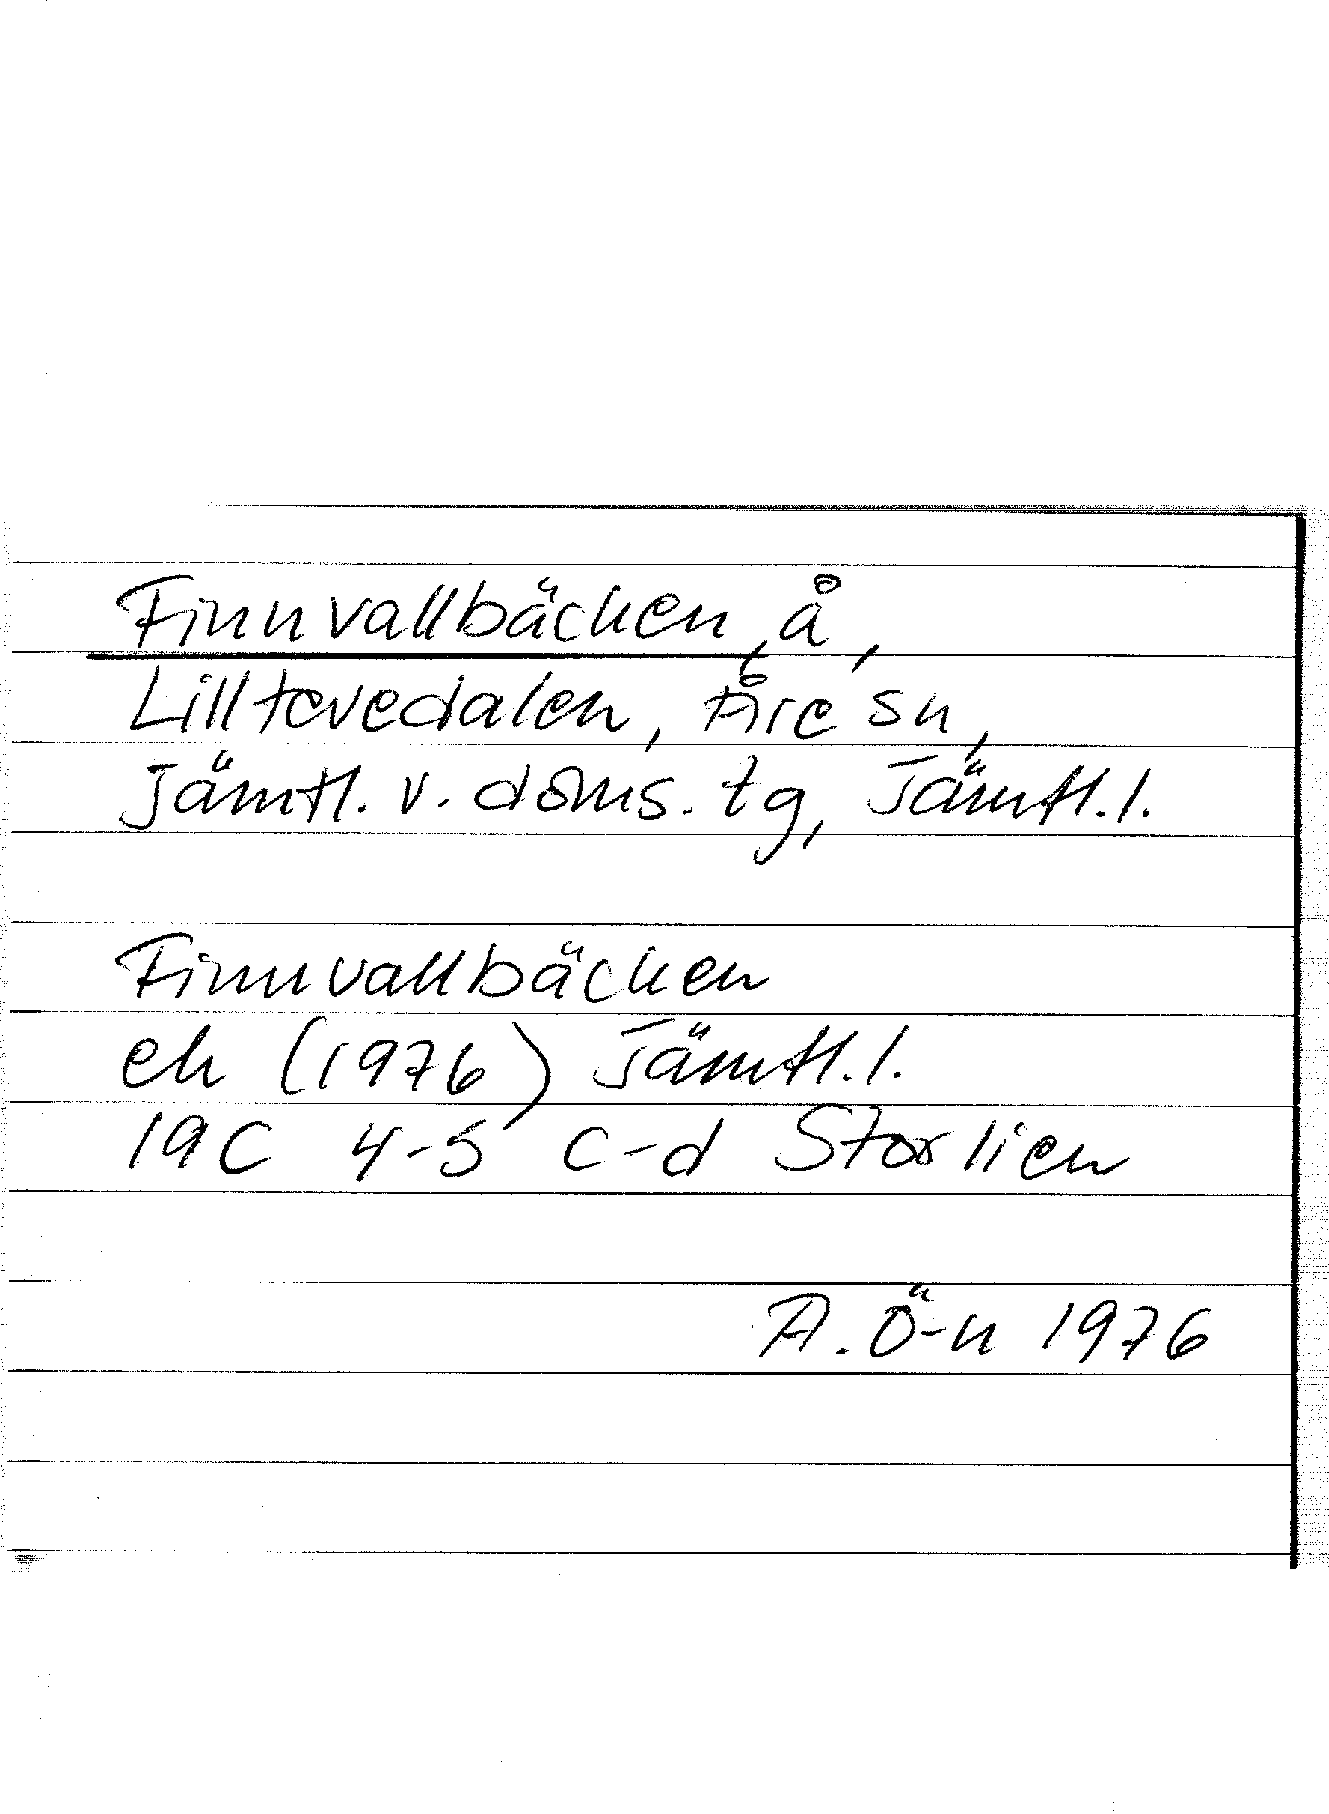 Finnvallbäcken, å,
Lilltevedalen, Åre sn,
Jämtl. v. doms. tg, Jämtl. l.
Finnvallbäcken
ek (1976) Jämtl. l.
19C 4-5 c-d Storlien
A. Ö-n 1976